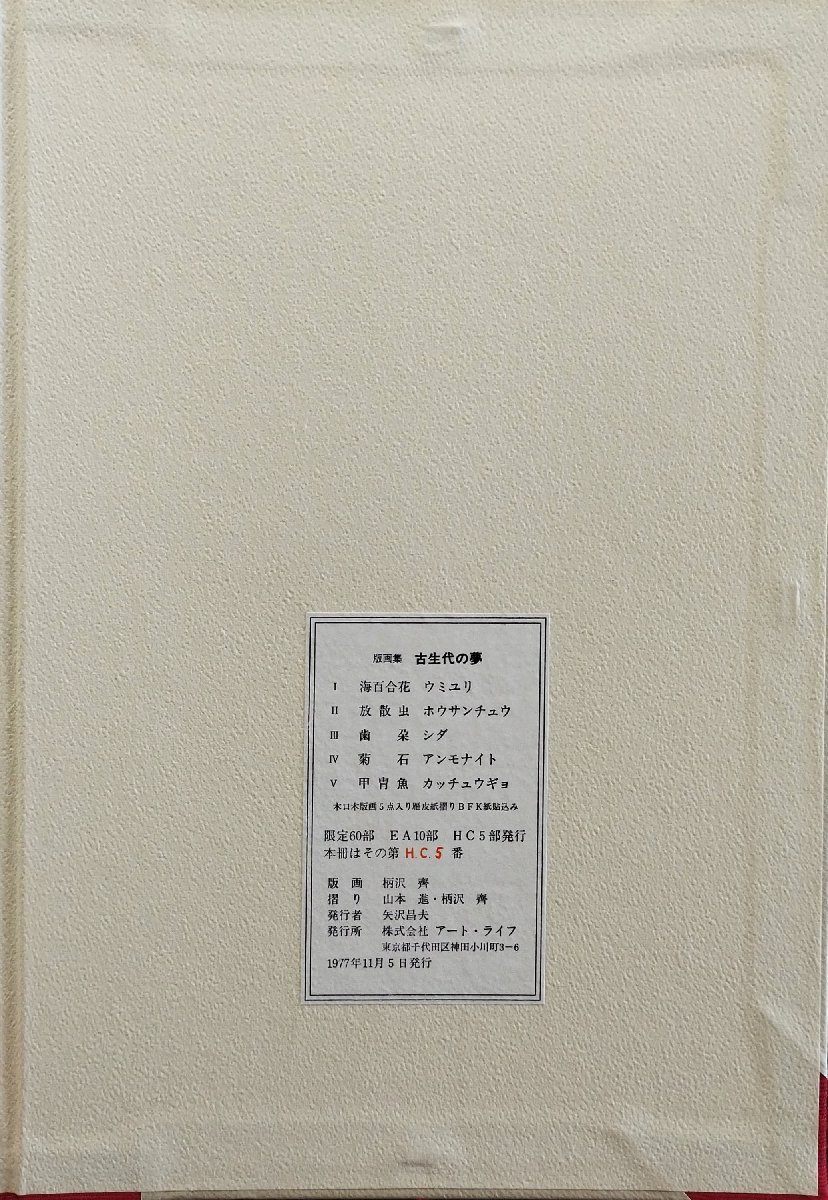 版画集 古生代の夢
Ⅰ 海百合花 ウミユリ
Ⅱ 放散虫 ホウサンチュウ
Ⅲ 歯朶 シダ
Ⅳ 菊石 アンモナイト
Ⅴ 甲冑魚 カッチュウギョ
木口木版画5点入り雁皮紙摺りBFK紙貼込み
限定60部 EA10部 HC5部発行
本冊はその第 H.C.5 番
版画 柄沢 齊
摺り 山本 進・柄沢 齊
発行者 矢沢昌夫
発行所 株式会社 アート・ライフ
東京都千代田区神田小川町3-6
1977年11月5日発行